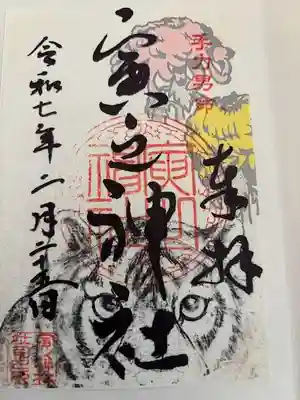 手力男命
奉拝
寅之神社
令和七年二月二十五日